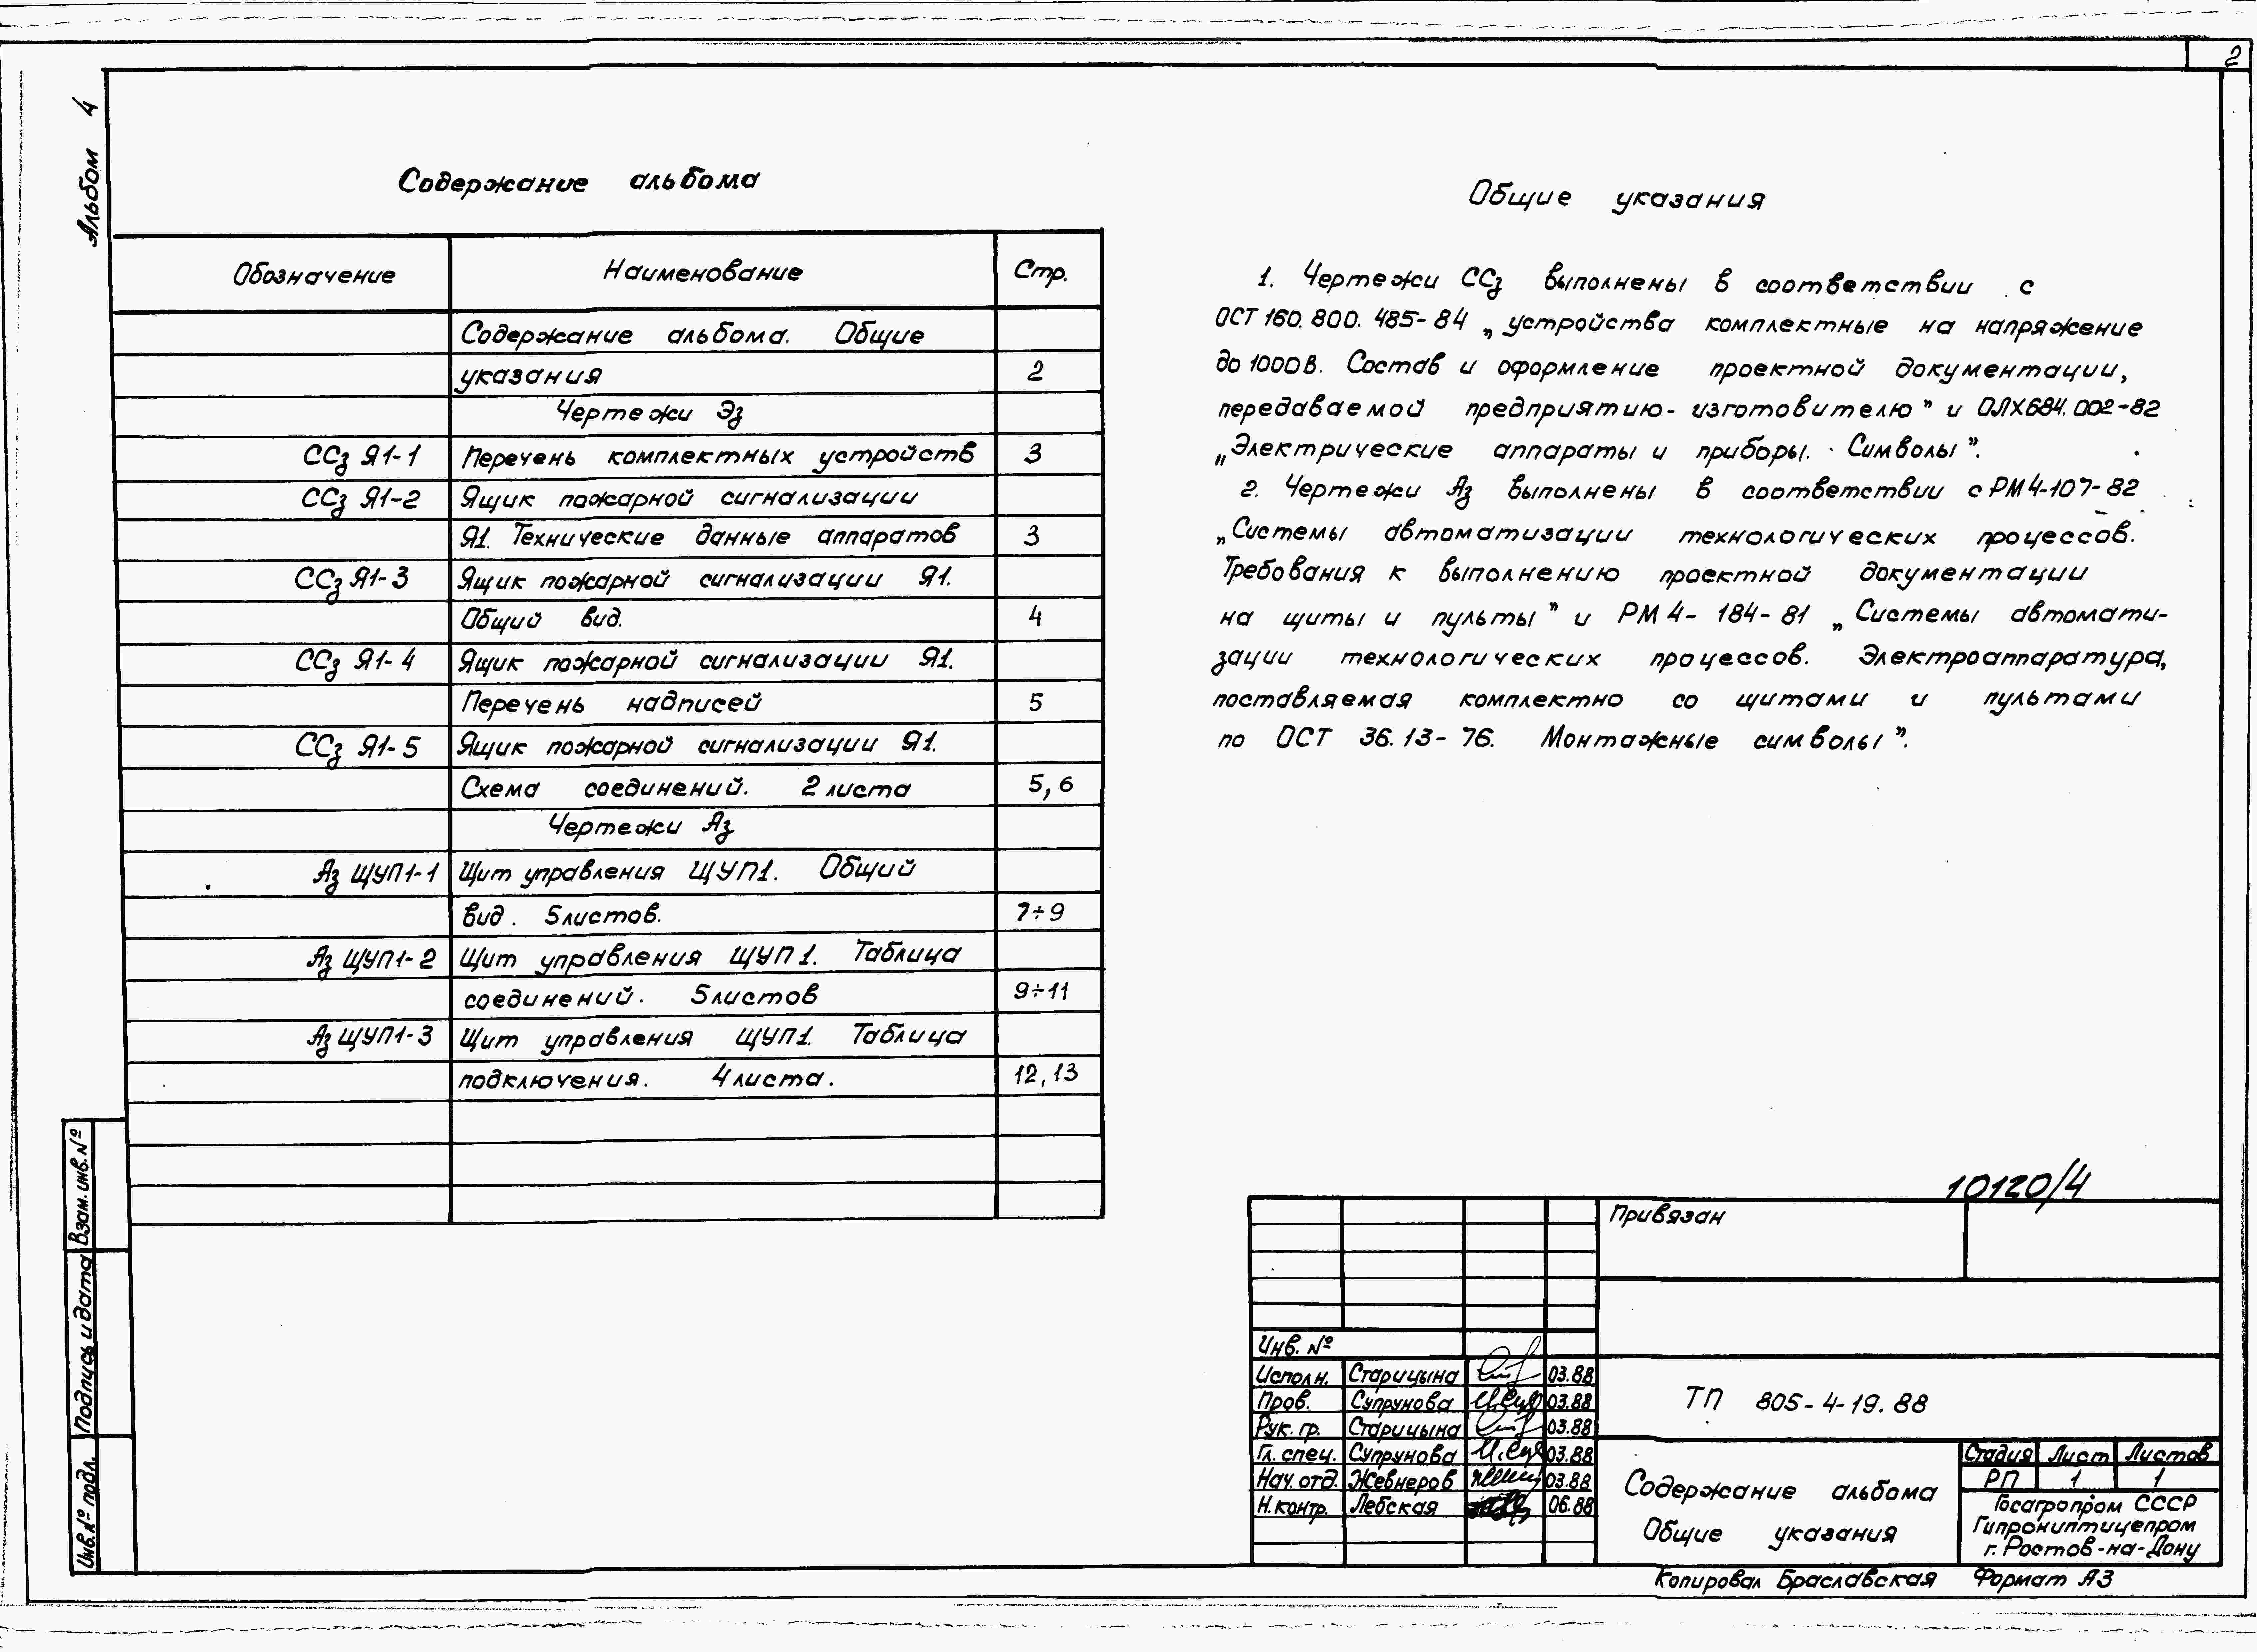 2
Альбом 4
Содержание альбома
Обозначение Наименование Стр.
Содержание альбома. Общие
указания 2
Чертежи Эз
ССз Я1-1 Перечень комплектных устройств 3
ССз Я1-2 Ящик пожарной сигнализации
Я1. Технические данные аппаратов 3
ССз Я1-3 Ящик пожарной сигнализации Я1.
Общий вид. 4
ССз Я1-4 Ящик пожарной сигнализации Я1.
Перечень надписей 5
ССз Я1-5 Ящик пожарной сигнализации Я1.
Схема соединений. 2 листа 5, 6
Чертежи Аз
Аз ЩУП1-1 Щит управления ЩУП1. Общий
вид. 5 листов. 7÷9
Аз ЩУП1-2 Щит управления ЩУП1. Таблица
соединений. 5 листов 9÷11
Аз ЩУП1-3 Щит управления ЩУП1. Таблица
подключения. 4 листа. 12, 13
Общие указания
1. Чертежи ССз выполнены в соответствии с
ОСТ 160.800.485-84 „устройства комплектные на напряжение
до 1000 В. Состав и оформление проектной документации,
передаваемой предприятию-изготовителю” и ОЛХ684.002-82
„Электрические аппараты и приборы. Символы”.
2. Чертежи Аз выполнены в соответствии с РМ4-107-82
„Системы автоматизации технологических процессов.
Требования к выполнению проектной документации
на щиты и пульты” и РМ4-184-81 „Системы автомати-
зации технологических процессов. Электроаппаратура,
поставляемая комплектно со щитами и пультами
по ОСТ 36.13-76. Монтажные символы”.
Взам. инв. №
Подпись и дата
Инв. № подл.
10120/4
Привязан
Инв. №
Исполн. Старицына 03.88
Пров. Супрунова 03.88
Рук. гр. Старицына 03.88
Гл. спец. Супрунова 03.88
Нач. отд. Жевнеров 03.88
Н. контр. Лебская 06.88
ТП 805-4-19.88
Содержание альбома
Общие указания
Стадия Лист Листов
РП 1 1
Госагропром СССР
Гипрониптицепром
г. Ростов-на-Дону
Копировал Браславская Формат А3